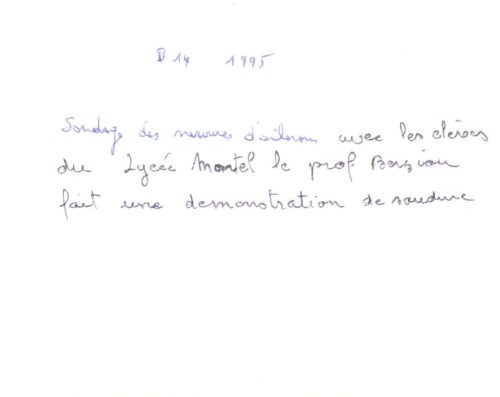 B 14 1995
Soudage des nervures d'aileron avec les élèves
du Lycée Montel le prof
fait une demonstration de soudure